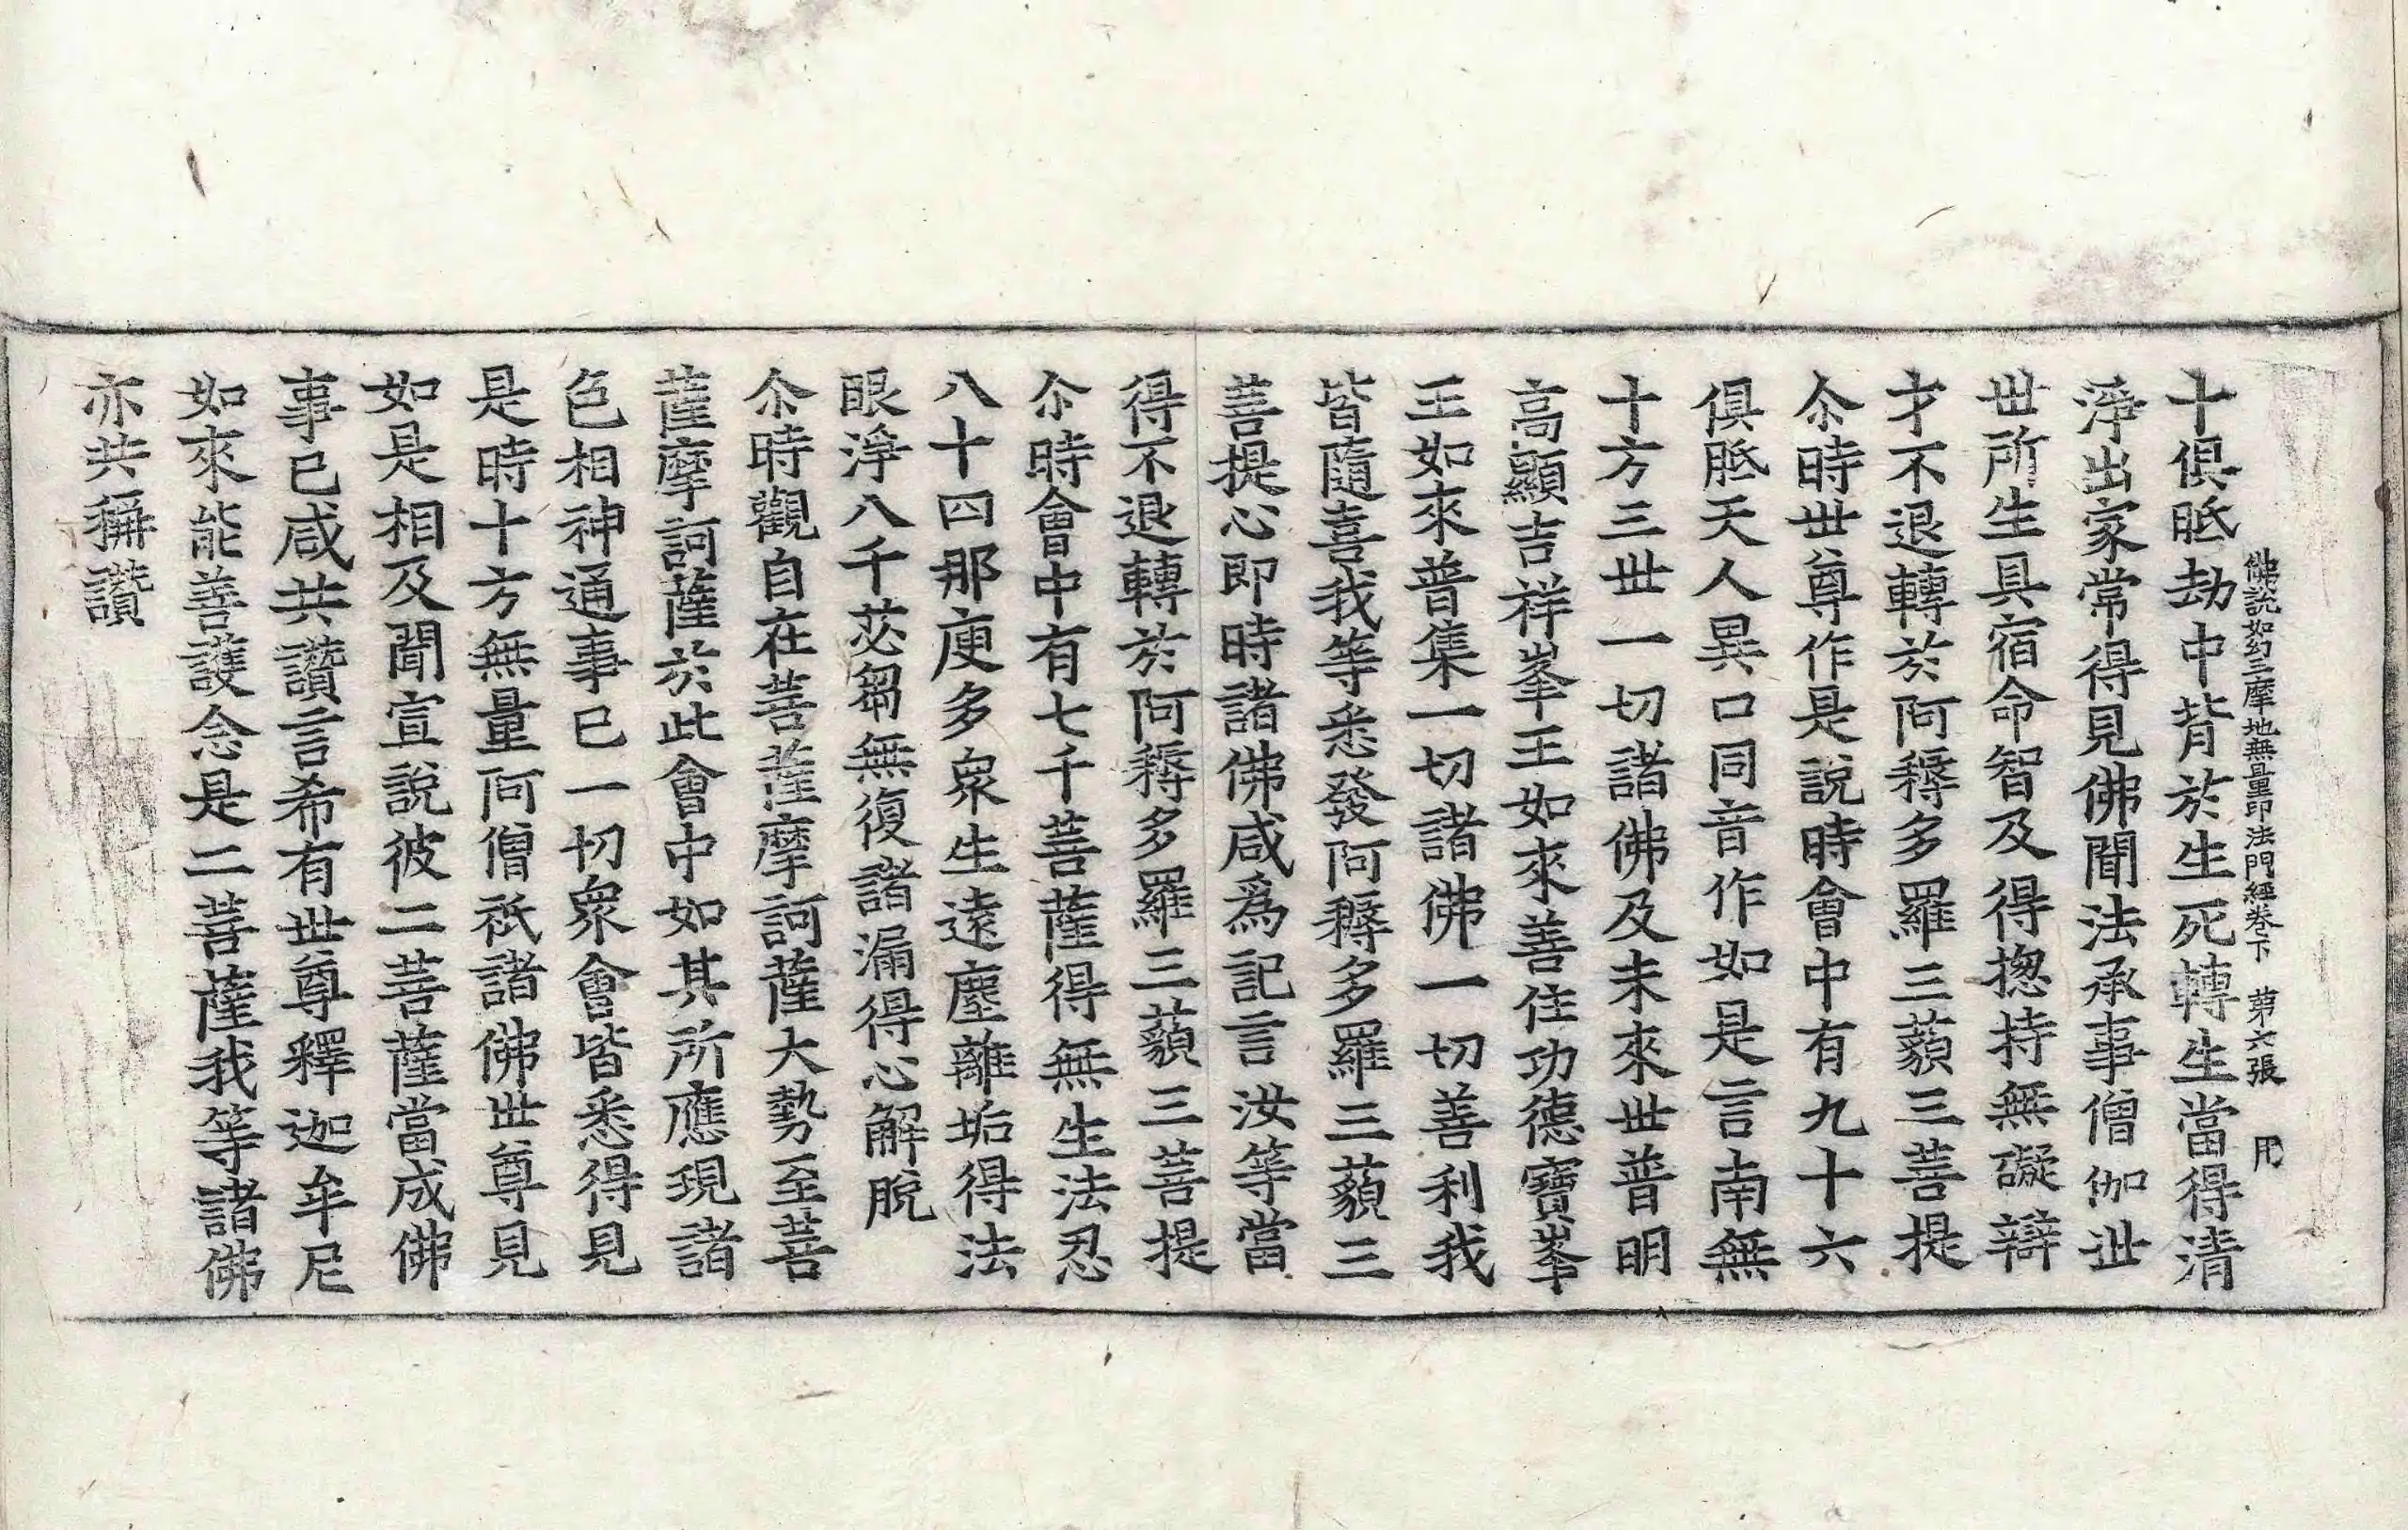 佛說如幻三摩地無量印法門經卷下　苐六張　用
十俱胝劫中背於生死轉生當得清
淨出家常得見佛聞法承事僧伽世
世所生具宿命智及得揔持無礙辯
才不退轉於阿耨多羅三藐三菩提
尒時世尊作是說時會中有九十六
俱胝天人異口同音作如是言南無
十方三世一切諸佛及未來世普明
高顯吉祥峯王如來善住功德寶峯
王如來普集一切諸佛一切善利我
皆隨喜我等悉發阿耨多羅三藐三
菩提心即時諸佛咸爲記言汝等當
得不退轉於阿耨多羅三藐三菩提
尒時會中有七千菩薩得無生法忍
八十四那庾多衆生遠塵離垢得法
眼淨八千苾芻無復諸漏得心解脫
尒時觀自在菩薩摩訶薩大勢至菩
薩摩訶薩於此會中如其所應現諸
色相神通事已一切衆會皆悉得見
是時十方無量阿僧祇諸佛世尊見
如是相及聞宣說彼二菩薩當成佛
事已咸共讚言希有世尊釋迦牟尼
如來能善護念是二菩薩我等諸佛
亦共稱讚